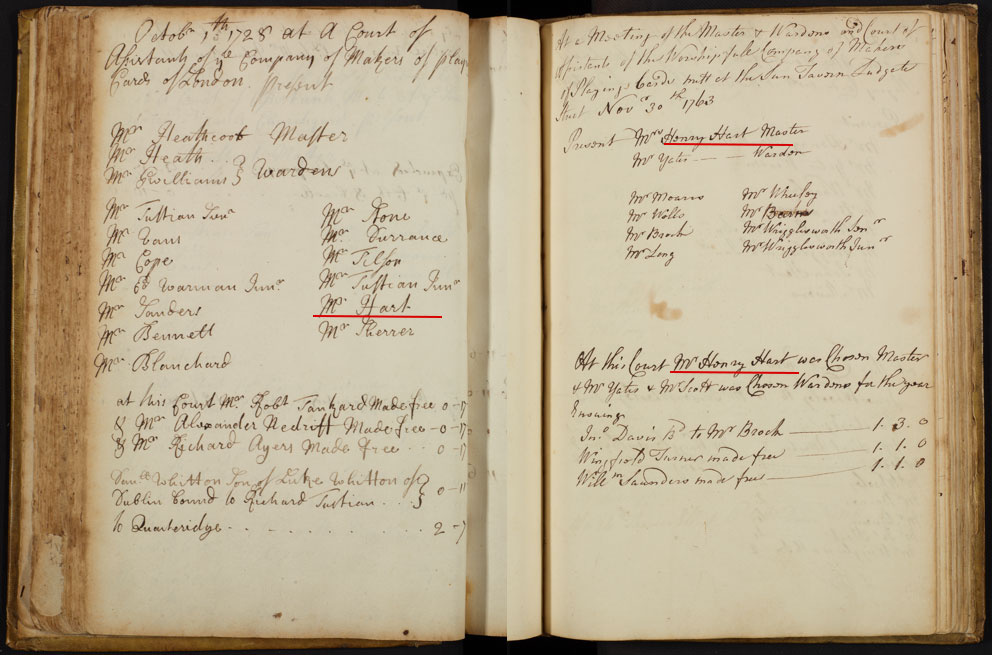 Octobr 1th 1728 at A Court of
Assistants of ye Company of Makers of play
Cards of London. present
Mr Heathcoot Master
Mr Heath
Mr Gwilliams } Wardens
Mr Tustian Senr
Mr Vans
Mr Cope
Mr Warman Junr
Mr Sanders
Mr Bennell
Mr Blanchard
Mr Hone
Mr Surrance
Mr Tilson
Mr Tustian Junr
Mr Hart
Mr Sherrer
at this Court Mr Robt Tankard Made free 0-17
& Mr Alexander Nedriff Made free - 0-17
& Mr Richard Ayers Made free . . 0-17
Samll Whitton Son of Luke Whitton of
Dublin bound to Richard Tustian . . } 0-11
to Quarteridge - . . . . . . . . 2-7
At a Meeting of the Master & Wardens and Court of
Assistants of the Worshipfule Company of Makers
of Playing Cards mett at the Sun Tavern Ludgate
Street Novr 30th 1763
Present Mr Henry Hart Master
Mr Yates - - - Warden
Mr Moains
Mr Wells
Mr Broch
Mr Long
Mr Whisley
Mr
Mr Wrigglesworth Senr
Mr Wrigglesworth Junr
At this Court Mr Henry Hart was Chosen Master
& Mr Yates & Mr Scott was Chosen Wardens for the year
Ensuing
Jno Davis Bd to Mr Broch 1. 3. 0
Wingfield Turner made free 1. 1. 0
Willm Saunders made free 1. 1. 0